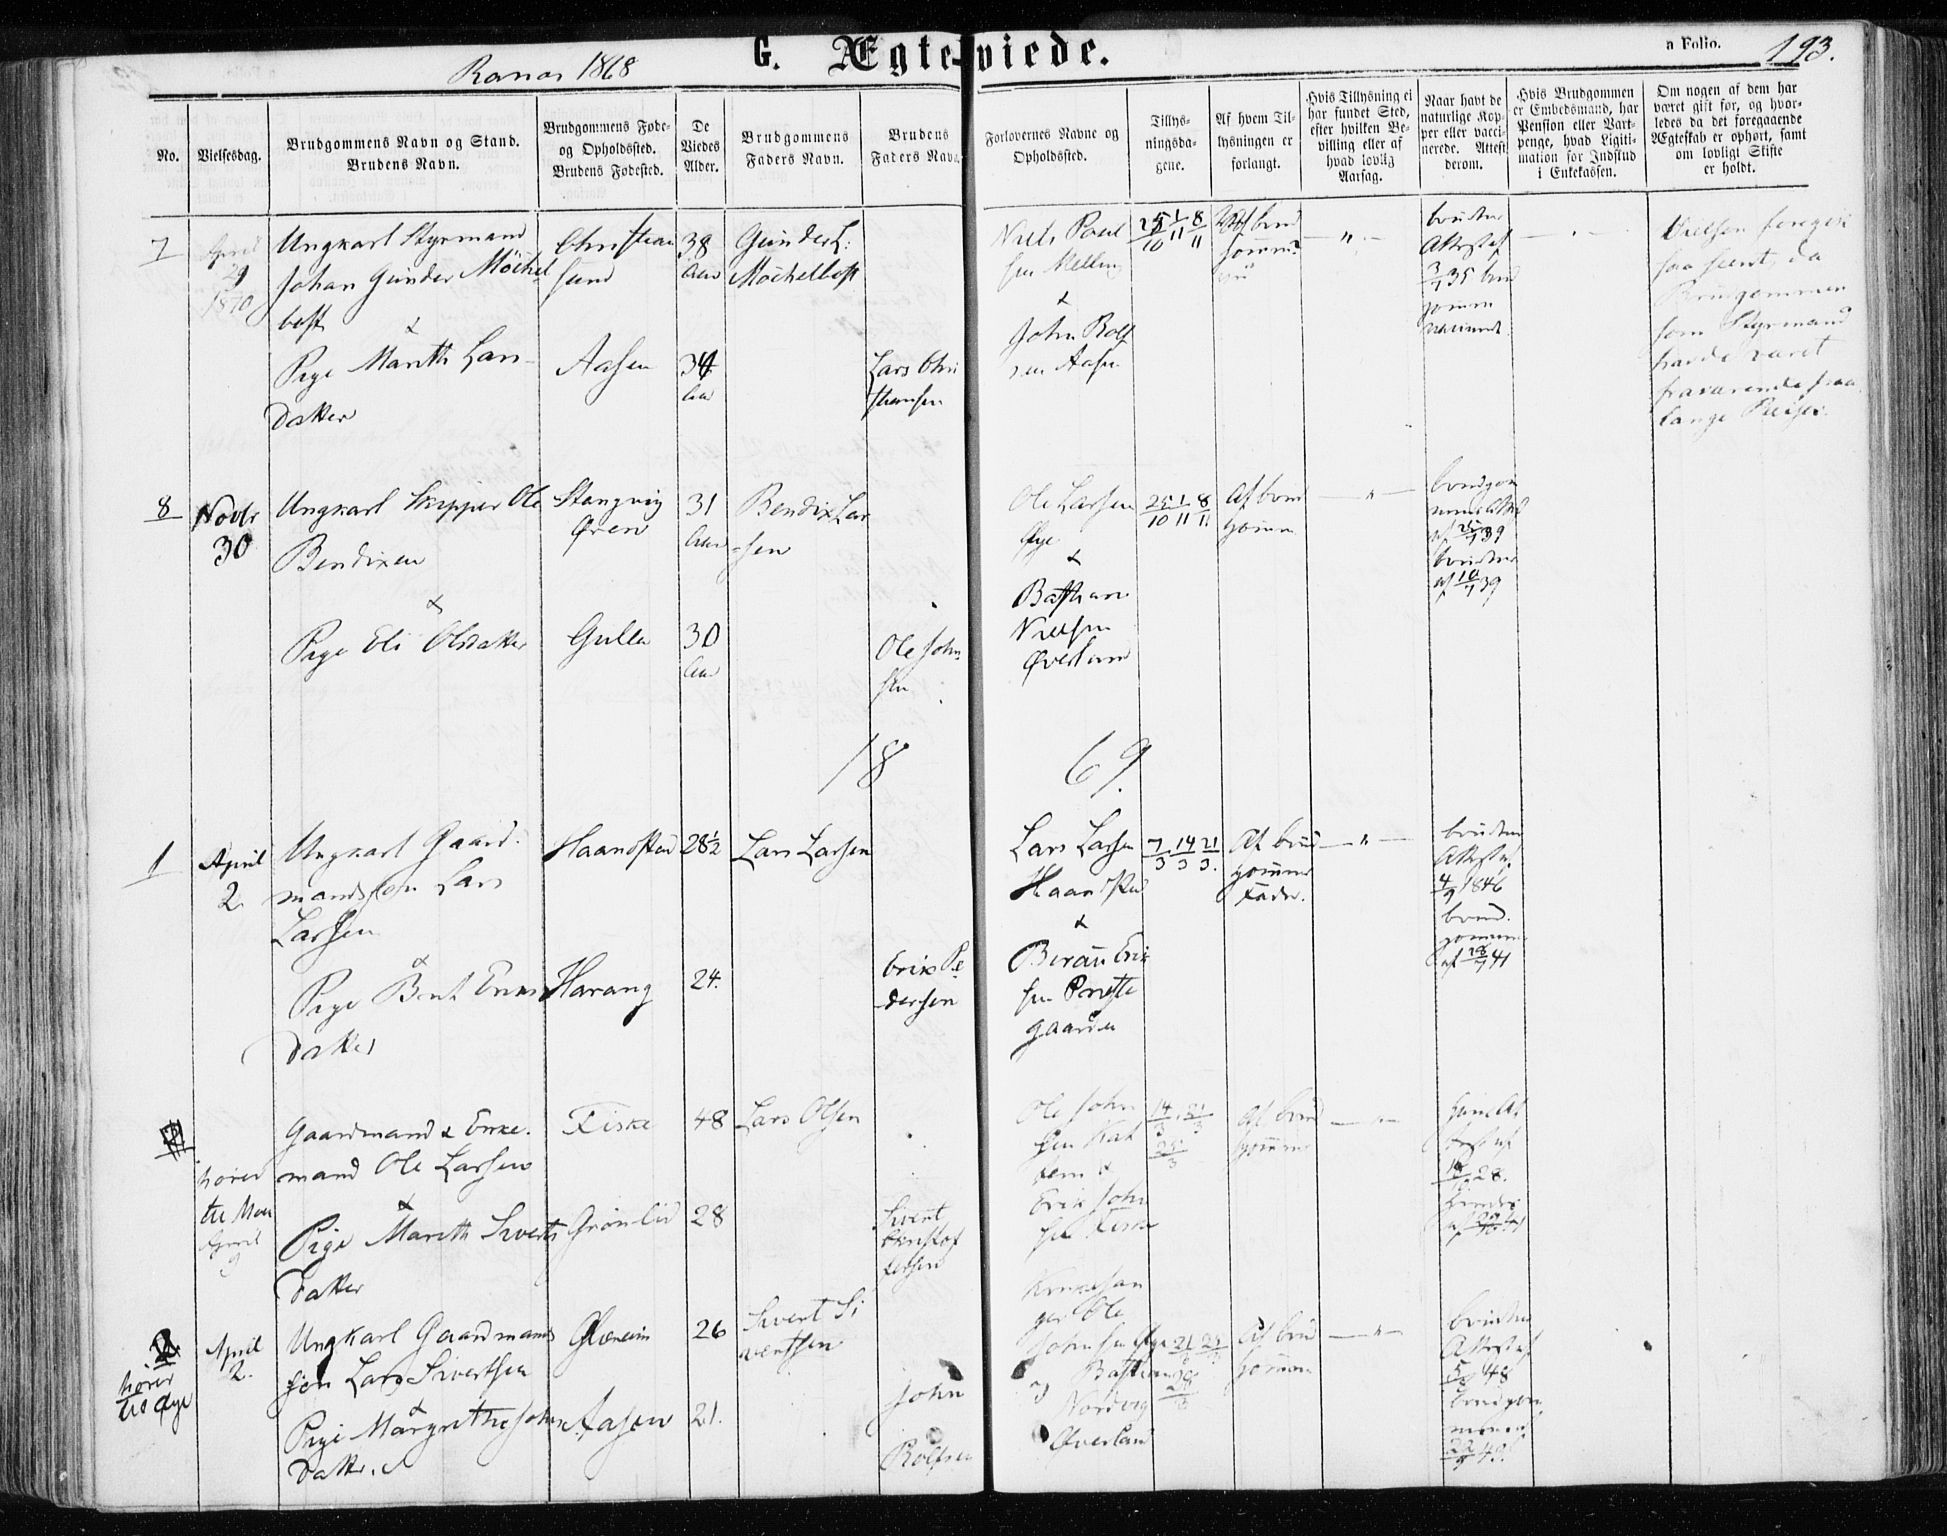 Ranæs 1868
G. Ægteviede.
a Folio. 193.
No.
Vielsesdag.
Brudgommens Navn og Stand.
Brudens Navn.
Brudgommens Føde-
og Opholdssted.
Brudens Fødested.
De
Viedes
Alder.
Brudgommens
Faders Navn.
Brudens
Faders Navn.
Forlovernes Navne og
Opholdssted.
Tillys-
ningsda-
gene.
Af hvem Til-
lysningen er
forlangt.
Hvis Tillysning ei
har fundet Sted,
efter hvilken Be-
villing eller af
hvad lovlig
Aarsag.
Naar havt de
naturlige Kop-
per eller vacci-
nerede. Attest
derom.
Hvis Brudgommen
er Embedsmand, har
Pension eller Vart-
penge, hvad Ligiti-
mation for Indskud
i Enkekassen.
Om nogen af dem har
været gift før, og hvor-
ledes da det foregaaende
Ægteskab er ophørt, samt
om lovligt Skifte
er holdt.
7
April
29
1870
Ungkarl Styrmand
Johan Gunder Möchel
best
&
Pige Marith Lars
Datter
Christian
sund
Aasen
38
Aar
34
Aar
Gunder L:
Möchelbest
Lars Chri
stiansen
Niels Poul
sen Melling
&
John Rolf
sen Aasen
25/10 1/11 8/11
Af brud
gomm
— " —
brudens
Attest af
3/7 35 brud
gomm
vaccineret
Vielsen foregik
saa seent, da
Brudgommen
som Styrmand
havde været
fraværende paa
lange Reiser.
8
Novbr
30
Ungkarl Skipper Ole
Bendixen
&
Pige Eli Olsdatter
Stangvig
Øren
Gulla
31
Aar
30
Aar
Bendix Lar
sen
Ole John
sen
Ole Larsen
Øye
&
Bastian
Nielsen
Øverland
25/10 1/11 8/11
Af brud
gomm
— " —
brudgom
mens Attest
af 25/7 39
brudens
af 10/7 39
18 69.
1
April
2
Ungkarl Gaard-
mandssøn Lars
Larsen
&
Pige Berit Eriks
Datter
Haanstad
Harang
28½
24.
Lars Larsen
Erik Pe
dersen
Lars Larsen
Haanstad
&
Berau Erik
sen Præste
gaarden
7/3 14/3 21/3.
Af brud
gommens
Fader.
— " —
brudens
Attest af
4/9 1846
brud.
gommens
af 28/7 41
hører
til Moe
April
9
Gaardmand & Enke.
mand Ole Larsen
&
Pige Marith Siverts
Datter
Fiske
Grönlid
48
28
Lars Olsen
Sivert
Christof
fersen
Ole John
sen
&
Erik John
sen Fiske
14/3. 21/3
25/3
Af brud
gommen
— " —
2
hører
til Øye
April
2.
Ungkarl Gaardmands
søn Lars Sivertsen
&
Pige Margrethe Johns
Datter.
Glæreim
Aasen
26
21.
Sivert Si
vertsen
John
Rolfsen
Kirkesan
ger Ole
Johnsen Øye
Bastian
Nordvig
Øverland
Af brud
gommen
— " —
brudens
Attest af
5/8 48
brudgom
mens af
22/9 43.